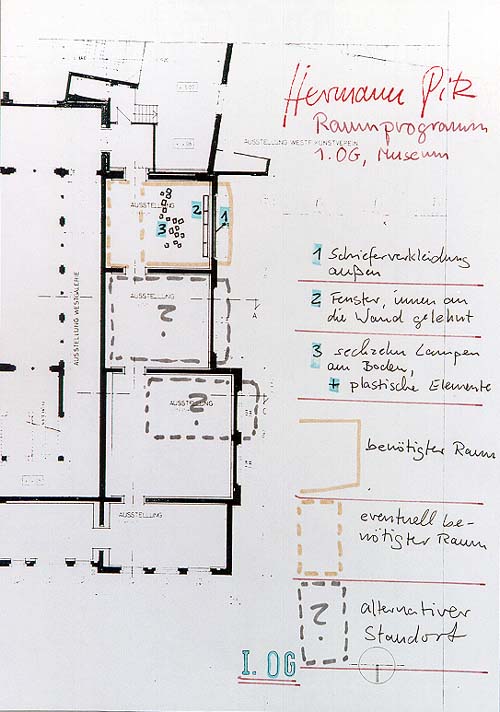 Hermann Pitz
Raumprogramm
1. OG, Museum
AUSSTELLUNG WESTF KUNSTVEREIN
AUSSTELLUNG
2
1
3
AUSSTELLUNG
?
A
AUSSTELLUNG WESTGALERIE
AUSSTELLUNG
?
C
AUSSTELLUNG
1 Schieferverkleidung
außen
2 Fenster, innen an
die Wand gelehnt
3 sechzehn Lampen
am Boden,
+ plastische Elemente
benötigter Raum
eventuell be-
nötigter Raum
?
alternativer
Standort
I. OG